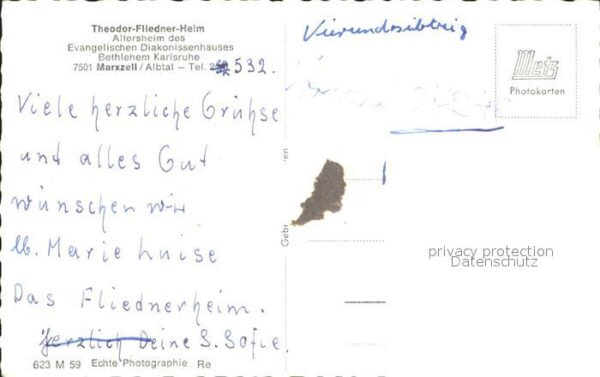 Theodor-Fliedner-Heim
Altersheim des
Evangelischen Diakonissenhauses
Bethlehem Karlsruhe
7501 Marxzell / Albtal – Tel. 532.
Viele herzliche Grühse
und alles Gut
wünschen wir
lb. Marie Luise
Das Fliednerheim.
Herzlich Deine S. Sofie.
623 M 59 Echte Photographie Re
Gebr
ten
Vierundsibtzig
Metz
Photokarten
privacy protection
Datenschutz